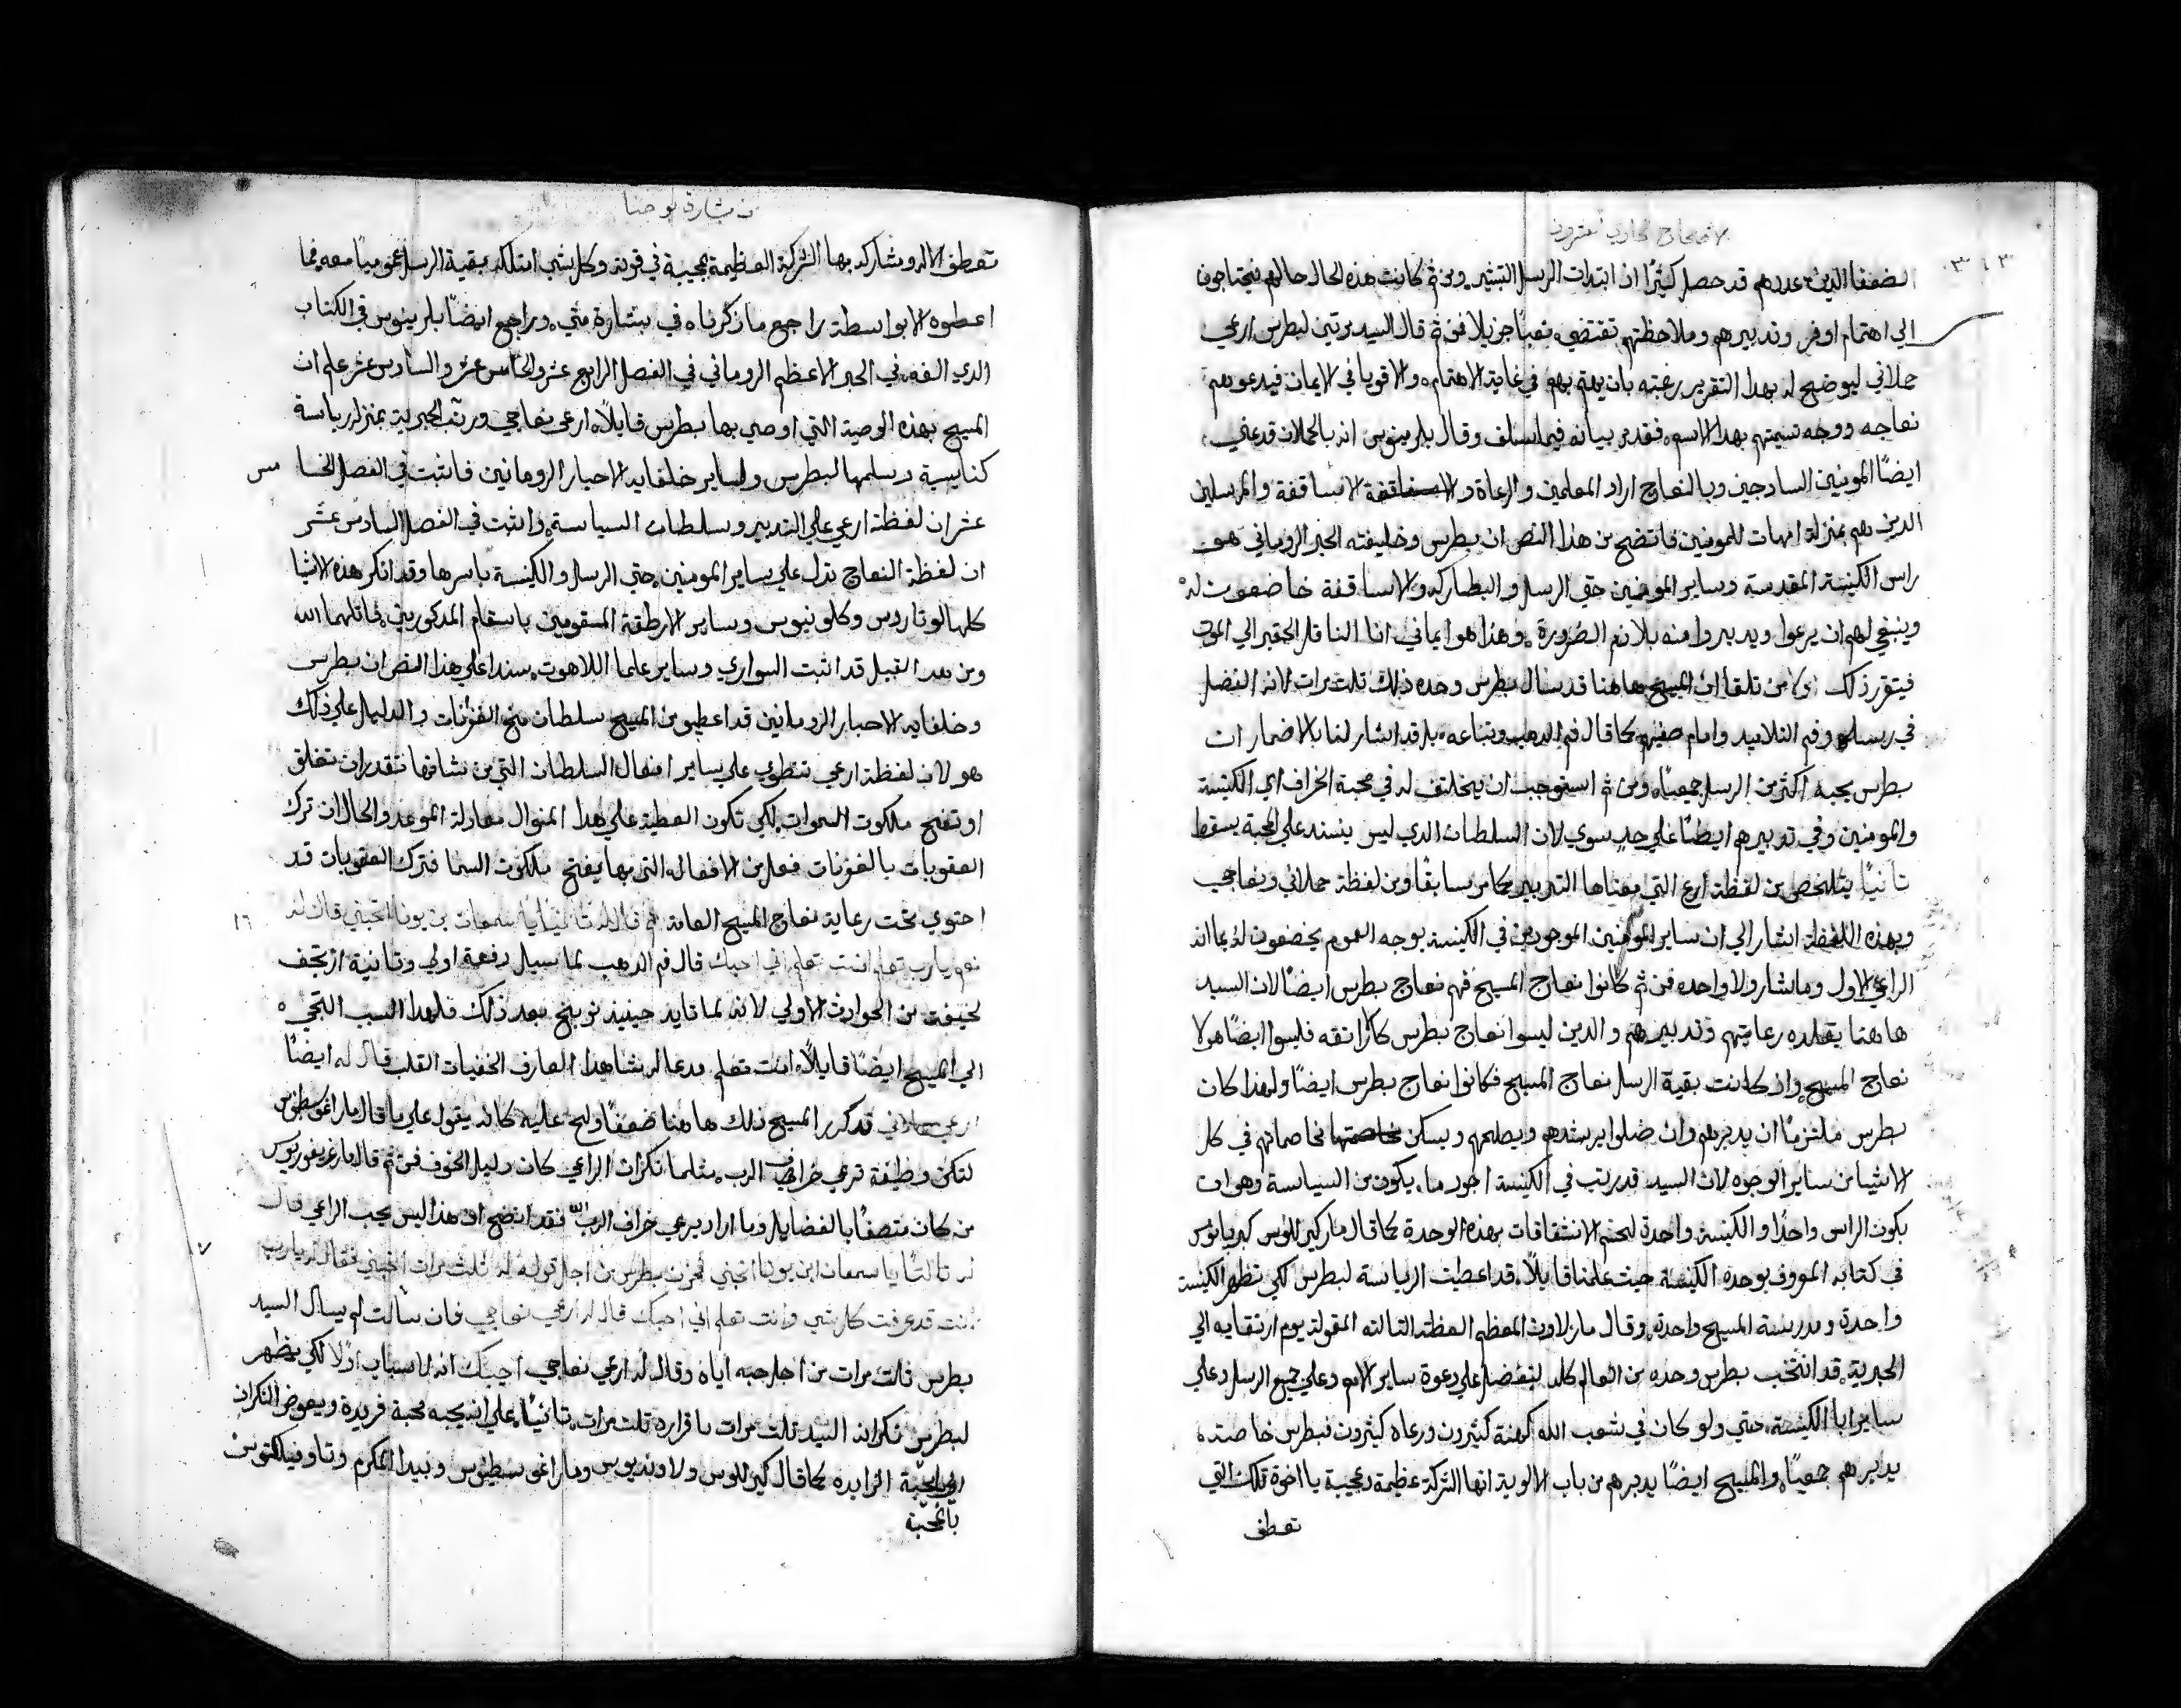 الاصحاح الحادي والعشرون
الضعفا الذين عددهم قد حصل كثيرًا اذ ابتدات الرسل التبشير. ومن ثم كانت هذه الحال حالهم يحتاجون
الي اهتمام اوفر وتدبيرهم وملاحظتهم تقتضي تعبًا جزيلا فمن ثم قال السيد مرتين لبطرس ارعي
حملاني ليوضح له بهذا التقرير رغبته بان يهتم بهم في غاية الاهتمام. والاقويا في الايمان فيدعوهم
نعاجه ووجه تسميتهم بهذا الاسم. فقد مر بيانه فيما سلف وقال بلرمينوس انه بالحملان قد عني
ايضًا المومنين السادجين وبالنعاج اراد المعلمين والرعاة و الاساقفة والمرسلين
الدين هم بمنزلة امهات للمومنين فاتضح من هذا النص ان بطرس وخليفته الحبر الروماني هو
راس الكنيسة المقدسة وساير المومنين حتي الرسل والبطاركه والاساقفة خاضعون له
وينبغي لهم ان يرعوا ويدبروا منه بلا نعم الضرورة. وهذا هو ايماني انا الناقل الحقير الي الموت
فيتقرر ذلك اولا من تلقا ان المسيح هاهنا قد سال بطرس وحده ذلك تلت مرات لانه الفضل
في رسله وفم التلاميد وامام صفهم كما قال فم الدهب وتباعه. بل قد اشار لنا بالاضمار ان
بطرس يحبه اكثر من الرسل جميعًا. ومن ثم استوجب ان يخلتف له في محبة الخراف اي الكنيسة
والمومنين وفي تدبيرهم ايضًا علي حدٍ سوي لان السلطان الدي ليس يسند علي المحبة يسقط
تانيًا يتلخص من لفظة ارع التي معناها التدبير كما مر سابقًا ومن لفظة حملاني ونعاجي
وبهذه اللفظة اشار الي ان ساير المومنين الموجودين في الكنيسة بوجه العموم يخضعون له بما انه
الراعي الاول وما شار ولا واحده فمن ثم كانوا نعاج المسيح فهم نعاج بطرس ايضًا لان السيد
هاهنا يقلده رعايتهم وتدبيرهم والدين ليسوا نعاج بطرس كالزانقه فليسوا ايضًا هولا
نعاج المسيح. واذ كانت بقية الرسل نعاج المسيح فكانوا نعاج بطرس ايضًا ولهذا كان
بطرس ملتزمًا ان يدبرهم وان ضلوا يرشدهم ويصلحهم ويسكن مخاصماتهم في كل
الاشيا من ساير الوجوه لان السيد قد رتب في الكنيسة اجود ما يكون من السياسة وهو ان
يكون الراس واحدًا والكنيسة واحدة لتحسم الانشقاقات بهذه الوحدة كما قال مار كيرللوس كبريانوس
في كتابه المعروف بوحدة الكنيسة حيث علمنا قايلاً. قد اعطيت الرياسة لبطرس لكي تظهر الكنيسة
واحدة ومدرسة المسيح واحدة. وقال مار لاون المعظم العظة التالته المقولة يوم ارتقايه الي
الحبرية. قد انتخب بطرس وحده من العالم كله ليتفضل علي دعوة ساير الامم وعلي جميع الرسل وعلي
ساير ابا الكنيسة. حتي ولو كان في شعب الله كهنة كثيرون ورعاه كثيرون فبطرس خاصته
يدبرهم جمعيًا. والمسيح ايضًا يدبرهم من باب الالوية انها الشركة عظيمة وعجيبة يا اخوة تلك التي
تعطف
من بشارة يوحنا
تعطف الاله وشاركه بها الشركة العظيمة عجيبة في قوته وكل شي امتلكه بقية الرسل عموميًا معه فما
اعطوه الا بواسطة راجع ما ذكرناه في بشارة متي. وراجع ايضًا بلرمينوس في الكتاب
الدي الفه في الحبر الاعظم الروماني في الفصل الرابع عشر والخامس عشر والسادس عشر علم ان
المسيح بهذه الوصية التي اوصي بها بطرس قايلاً. ارعي نعاجي ورتب الحبرية بمنزلة رياسة
كنايسية وسلمها لبطرس ولساير خلفايه الاحبار الرومانيين فاثبت في الفصل الخامس
عشر ان لفظة ارعي علي التدبير وسلطان السياسة. واثبت في الفصل السادس عشر
ان لفظة النعاج تدل علي ساير المومنين. حتي الرسل والكنيسة باسرها وقد انكر هذه الاشيا
كلها لوتاروس وكلوينوس وساير الارطقة المسقومين باسقام المدكورين. قاتلهما الله
ومن هدا القبيل قد اثبت السواري وساير علما اللاهوت. سندا علي هدا النص ان بطرس
وخلفايه الاحبار الرومانيين قد اعطيو من المسيح سلطان منح الغفرانات والدليل علي ذلك
هو لان لفظة ارعي تنطوي علي ساير افعال السلطان التي من شانها تقدر ان تغلق
او تفتح ملكوت السموات. لكي تكون العطية علي هدا المنوال معادلة الموعد والحال ان ترك
العقوبات بالغفرانات فعل من الافعاله التي بها يفتح ملكوت السما فترك العقوبات قد
احتوي تحت رعاية نعاج المسيح العامة ثم قال له تانيًا يا سمعان بن يونا اتحبني قال له
نعم يارب تعلم انت تعلم اني احبك قال فم الدهب بما سيل دفعة اولي وتانية ارتجف
لخيفت من الحوادث الاولي لانه لما قايد حينيذ توبيخ بعد ذلك فلهدا السبب التجي
الي المسيح ايضًا قايلاً. انت تعلم مدعا له شاهدا العارف الخفيات القلب قال له ايضًا
ارعي حملاني قد كرر المسيح ذلك هاهنا ضعفًا ولح عليه كانه يقول علي ما قال مار اغوسطينوس
لتكن وظيفة ترعي خراف الرب. مثلما نكران الراعي كان دليل الخوف فمن ثم قال مار غريغوريوس
من كان متصفًا بالفضايل وما اراد يرعي خراف الرب فقد اتضح ان هذا ليس يحب الراعي قال
له تالتًا يا سمعان ابن يونا اتحبني فحزن بطرس من اجل قوله له ثلث مرات اتحبني فقال له يارب
انت قد عرفت كل شي وانت تعلم اني احبك قال له ارعي نعاجي فان سالت لم يسال السيد
بطرس ثلث مرات من اجل حبه اياه وقال له ارعي نعاجي اجبتك انه لاسباب اولا لكي يظهر
لبطرس نكرانه السيد تلت مرات باقراره تلت مرات. تانيًا. علي انه يحبه محبة فريدة ويعوض النكران
بالمحبة الزايده كما قال كيرللوس ولاونديوس ومار اغوسطينوس وبيدا المكرم وتاوفيلكتوس
بالمحبة